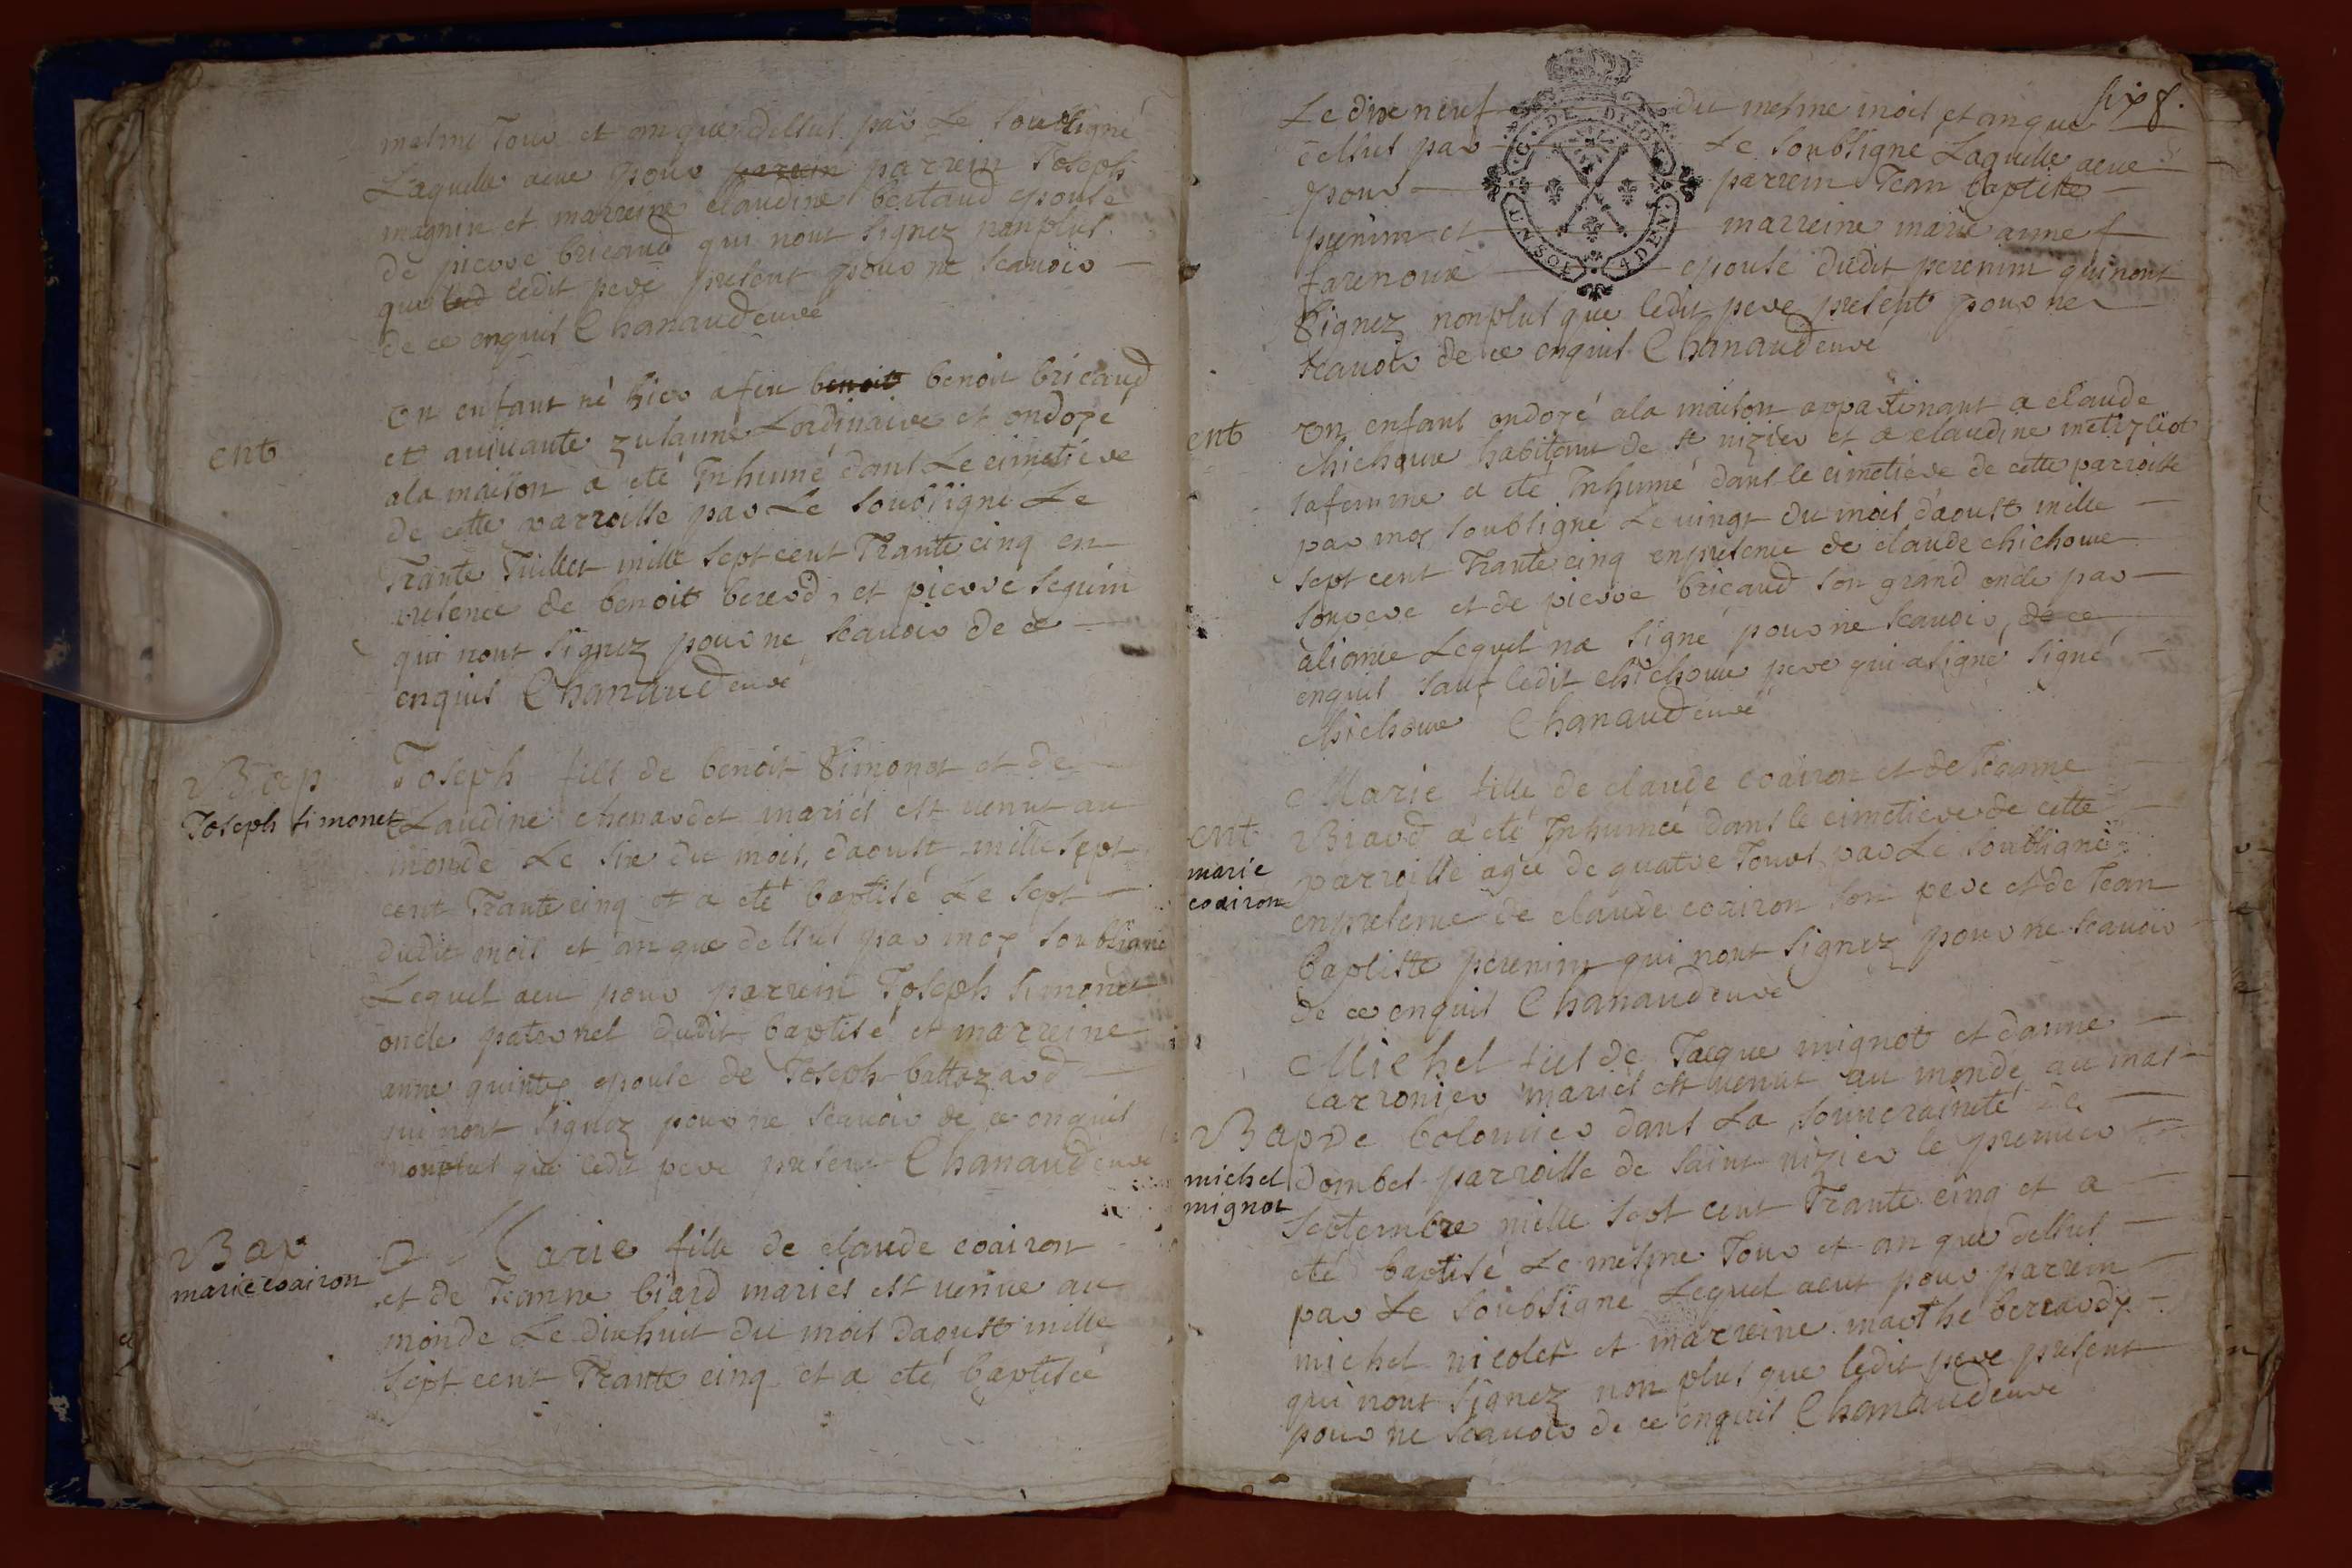 mesme Jour et an que dessus par Le soubsigné
Laquelle aeue pour parrein parrein Joseph
magnin et marreine claudine bertaud epouse
de pierre bricaud qui nont signez nonplus
que led ledit pere present pour ne scauoir
de ce enquis Chanaud curé
ent
Un enfant né hier a feu benoit benoit bricaud
et auiuante zusanne Lordinaire et ondoyé
ala maison a eté Inhumé dans Le cimetiere
de cette parroisse par Le soubsigné Le
Trante Juillet mille sept cent Trante cinq en
presence de benoit bererd, et pierre seguin
qui nont signez pour ne scauoir de ce
enquis Chanaud curé
Bap
Joseph simonet
Joseph fils de benoit Simonet et de
Claudine chenardet mariés est venut au
monde Le six du mois, daoust mille sept
cent Trante cinq et a eté baptisé Le sept
dudit mois et an que dessus par moy soubsigné
Lequel aeu pour parrein Joseph simonet
oncle paternel dudit baptisé et marreine
anne quintey epouse de Joseph baltazard
qui nont signez pour ne scauoir de ce enquis
nonplus que ledit pere present Chanaud curé
Bap
marie coairon
Marie fille de claude coairon
et de Jeanne biard mariés est venue au
monde Le dixhuit du mois daoust mille
sept cent Trante cinq et a eté baptisée
six 8.
Le dix neuf du mesme mois et an que
dessus par Le soubsigné Laquelle aeue
pour parrein Jean baptiste
perenim et marreine marie anne
farenoux epouse dudit perenim qui nont
signez nonplus que ledit pere present pour ne
scauoir de ce enquis Chanaud curé
G. DE DIJON
DEN.
ent
Un enfant ondoyé ala maison appartenant a claude
chichoux habitant de st nizier et a claudine
sa femme a eté Inhumé dans le cimetiere de cette parroisse
par moy soubsigné Le vingt du mois d'aoust mille
sept cent Trante cinq enpresence de claude chichoux
son pere et de pierre bricaud son grand oncle par
aliance Lequel na signé pour ne scauoir, de ce
enquis sauf ledit chichoux pere qui a signé signé
chichoux Chanaud curé
ent
marie
coairon
Marie fille de claude coairon et de Jeanne
Biard a eté Inhumée dans le cimetiere de cette
parroisse agée de quatre Jours par Le soubsigné
enpresence de claude coairon son pere et de Jean
baptiste perenim qui nont signez pour ne scauoir
de ce enquis Chanaud curé
Bap
michel
mignot
Michel fils de Jacque mignot et danne
carronier mariés est venut au monde au mas
de bolomier dans La souueraineté de
dombes parroisse de saint nizier le premier
septembre mille sept cent Trante cinq et a
eté baptisé Le mesme Jour et an que dessus
par Le soubsigné Lequel aeut pour parrein
michel nicolet et marreine marthe berrardy
qui nont signez non plus que ledit pere present
pour ne scauoir de ce enquis Chanaud curé